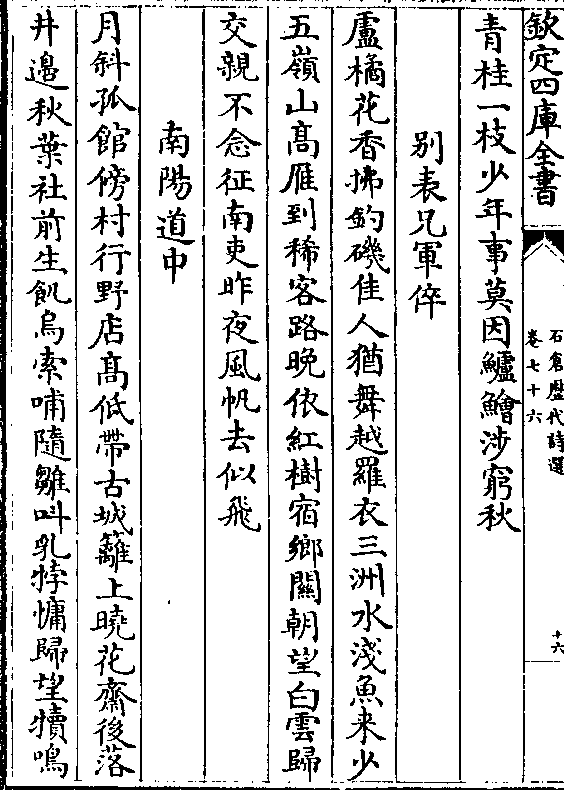 欽定四庫全書
石倉歴代詩選
卷七十六
十六
青桂一枝少年事莫因鱸鱠涉窮秋
別表兄軍倅
盧橘花香拂釣磯佳人猶舞越羅衣三洲水淺魚来少
五嶺山髙雁到稀客路晚依紅樹宿鄉關朝望白雲歸
交親不念征南吏昨夜風帆去似飛
南陽道中
月斜孤館傍村行野店髙低帶古城籬上曉花齋後落
井邉秋葉社前生飢烏索哺隨雛呌乳牸慵歸望犢鳴